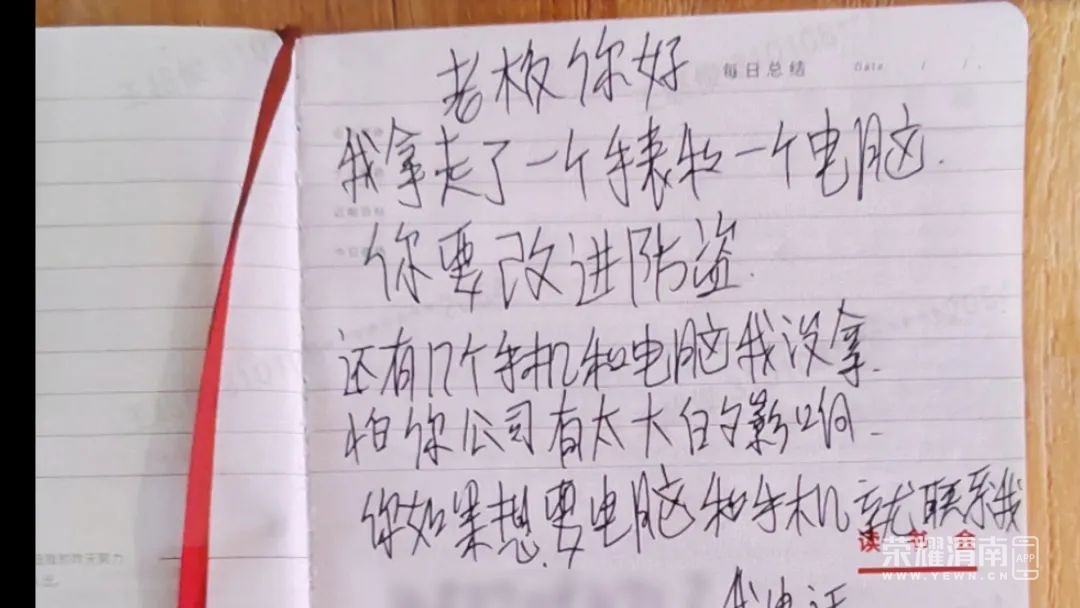 老板你好
每日总结 Date / /
我拿走了一个手表和一个电脑.
你要改进防盗.
还有几个手机和电脑我没拿.
怕你公司有太大的影响.
你如果想要电脑和手机就联系我
读书会
我电话
荣耀渭南 APP
WWW.YEWN.CN